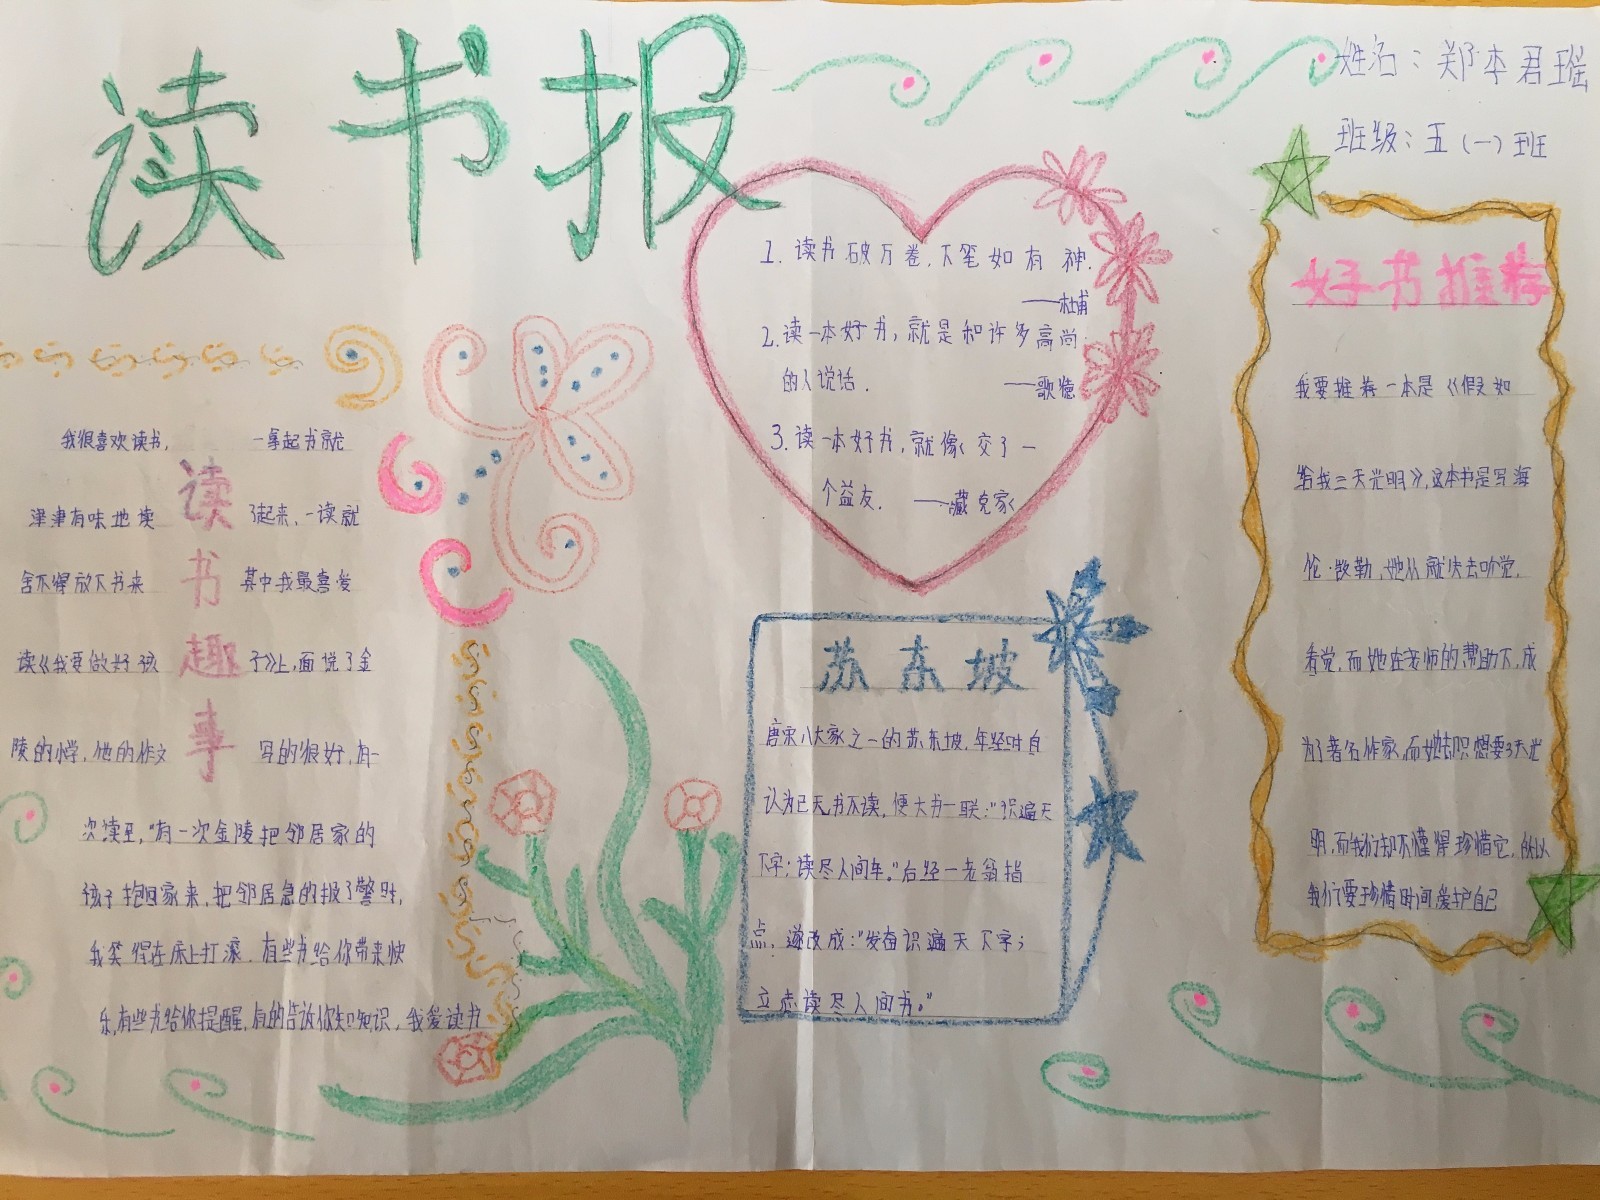 读书报
姓名：郑李君瑶
班级：五（一）班
读书趣事
我很喜欢读书，一拿起书就
津津有味地读了起来，一读就
舍不得放下书来 其中我最喜爱
读《我要做好孩子》上，面说了金
陵的小学，他的作文写的很好，有一
次读至，“有一次金陵把邻居家的
孩子抱回家来，把邻居急的报了警时，
我笑得在床上打滚．有些书给你带来快
乐，有些书给你提醒，有的告诉你知识，我爱读书
1．读书破万卷．下笔如有神．
——杜甫
2．读一本好书，就是和许多高尚
的人说话．——歌德
3．读一本好书，就像交了一
个益友．——藏克家
苏东坡
唐宋八大家之一的苏东坡，年轻时自
认为已无书不读，便大书一联：“识遍天
下字；读尽人间车。”后经一老翁指
点，遂改成：“发奋识遍天下字；
立志读尽人间书。”
好书推荐
我要推荐一本是《假如
给我三天光明》，这本书是写海
伦·敏勒，她从就失去听觉，
看觉，而她在老师的帮助下，成
为了著名作家，而她却只想要3天光
明，而我们却不懂得珍惜它，所以
我们要珍惜时间爱护自己